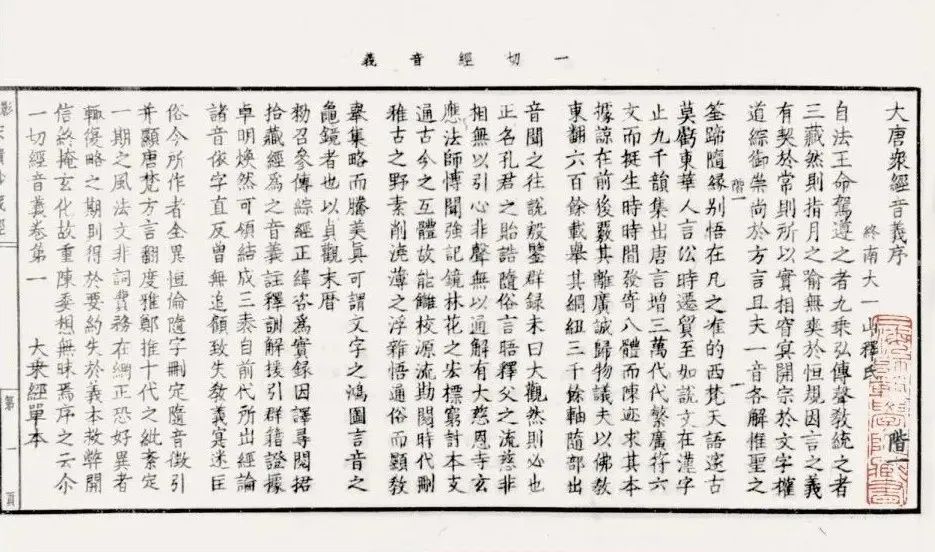 一切經音義
大唐衆經音義序
終南太一山釋氏
自法王命駕遵之者九乘弘傳聲教統之者
三藏然則指月之喻無爽於恒規因言之義
有契於常則所以實相窅冥開宗於文字權
道綜御崇尚於方言且夫一音各解惟聖之
筌蹄隨緣别悟在凡之准的西梵天語邃古
莫虧東華人言訟時遷貿至如說文在漢字
止九千韻集出唐言增三萬代代繁廣符六
文而挺生時時間發寄八體而陳迹求其本
據諒在前後覈其離廣誠歸物議夫以佛教
東翻六百餘載舉其綱紐三千餘軸隨部出
音聞之往說殽鑒群録未曰大觀然則必也
正名孔君之貽誥隨俗言晤釋父之流慈非
相無以引心非聲無以通解有大慈恩寺玄
應法師慱聞强記鏡林花之宏標窮討本支
通古今之互體故能讎校源流勘閲時代刪
雅古之野素削澆薄之浮雜悟通俗而顯教
舉集略而騰美眞可謂文字之鴻圖言音之
龜鏡者也以貞觀末曆
勑召參傳綜經正緯咨為實録因譯尋閲捃
拾藏經為之音義註釋訓解援引群籍證據
卓明煥然可領結成三袠自前代所出經論
諸音依字直反曾無追顧致失教義寔迷匡
俗今所作者全異恒倫隨字刪定隨音徵引
并顯唐梵方言翻度雅鄭推十代之紕紊定
一期之風法文非詞費務在綱正恐好異者
輒復略之期則得於要約失於義本故弊開
信終掩玄化故重陳委想無昧焉序之云尒
一切經音義卷第一
大衆經單本
第一頁